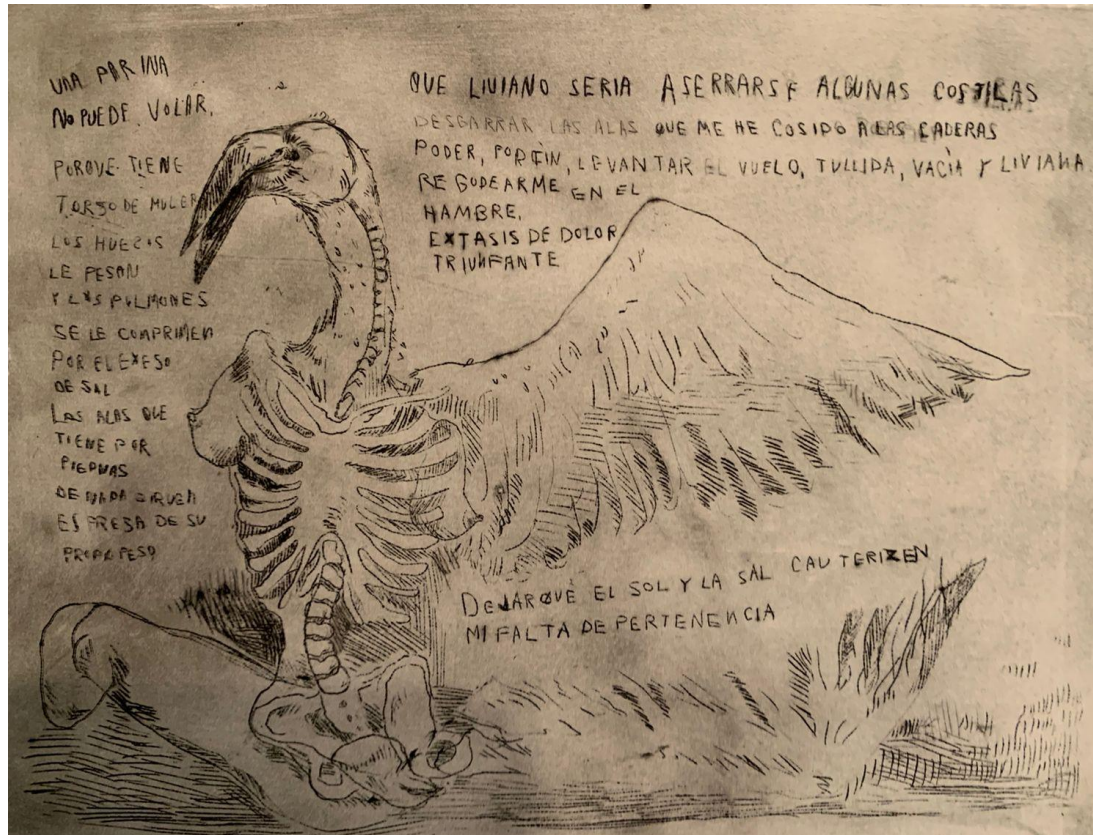 UNA PARINA
NO PUEDE VOLAR,
PORQUE TIENE
TORSO DE MUJER
LOS HUESOS
LE PESAN
Y LOS PULMONES
SE LE COMPRIMEN
POR EL EXESO
DE SAL
LAS ALAS QUE
TIENE POR
PIERNAS
DE NADA SIRVEN
ES PRESA DE SU
PROPIO PESO
QUE LIVIANO SERIA ASERRARSE ALGUNAS COSTILAS
DESGARRAR LAS ALAS QUE ME HE COSIDO A LAS CADERAS
PODER, POR FIN, LEVANTAR EL VUELO, TULLIDA, VACÌA Y LIVIANA
REGODEARME EN EL
HAMBRE,
EXTASIS DE DOLOR
TRIUNFANTE
DEJAR QUE EL SOL Y LA SAL CAUTERIZEN
MI FALTA DE PERTENENCIA